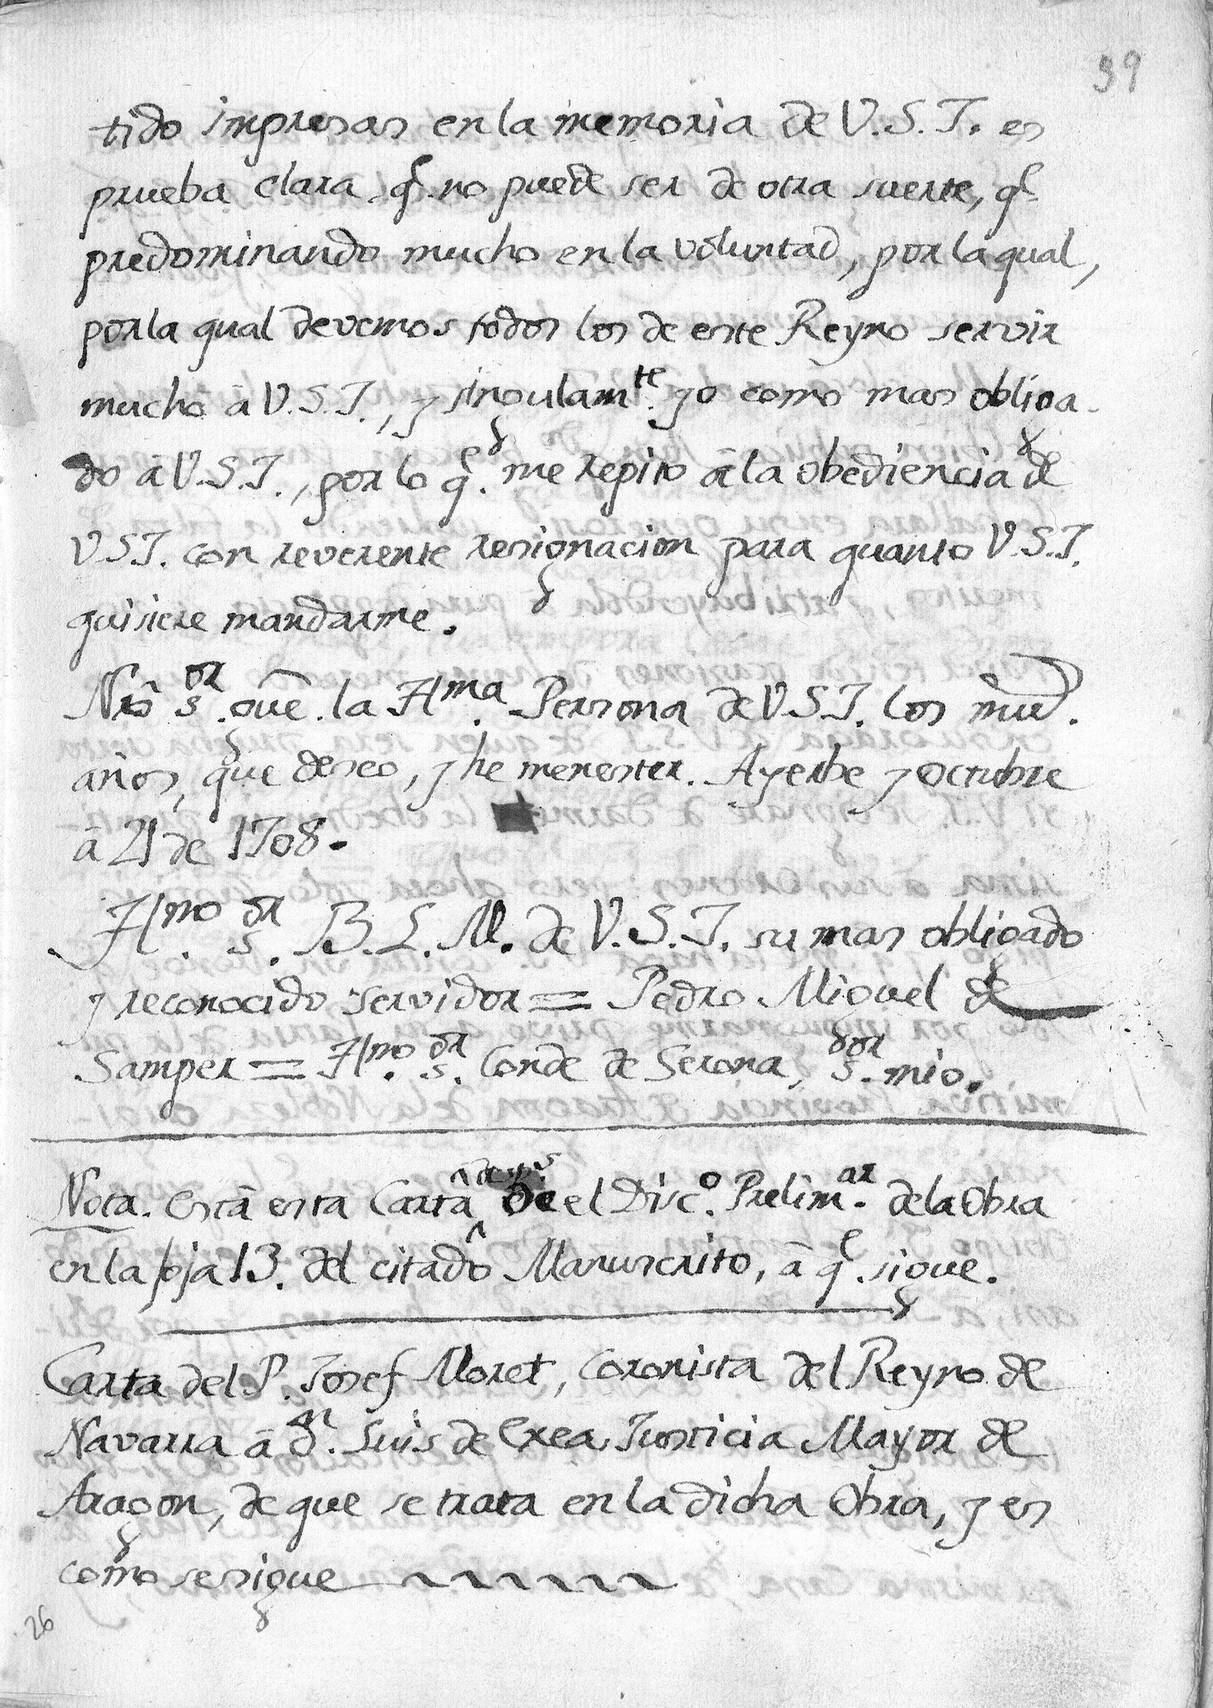 39
tido impresas en la memoria de V.S.I. es
prueba clara q.e no puede ser de otra suerte, q.e
predominando mucho en la voluntad, por la qual,
por la qual devemos todos los de este Reyno servir
mucho â V.S.I., y singulam.te yo como mas obliga-
do â V.S.I., por lo q.e me repito â la obediencia de
V.S.I. con reverente resignacion para quanto V.S.I.
quisiere mandarme.
Nrô s.or gue. la Il.ma Persona de V.S.I. los
años, que deseo, y he menester. Ayerbe y Octubre
â 21 de 1708.
Il.mo s.or B.L.M. de V.S.I. su mas obligado
y reconocido servidor = Pedro Miguel de
Samper = Il.mo s.or Conde de Gerona, s.or mio.
Nota. Está esta Carta de el Disc.o Prelim.ar de la Obra
en la foja 13. del citado Manuscrito, â q.e sigue.
Carta del P. Josef Moret, Coronista del Reyno de
Navarra â d.n Luis de Exea Justicia Mayor de
Aragon, de que se trata en la dicha Obra, y es
como se sigue
26